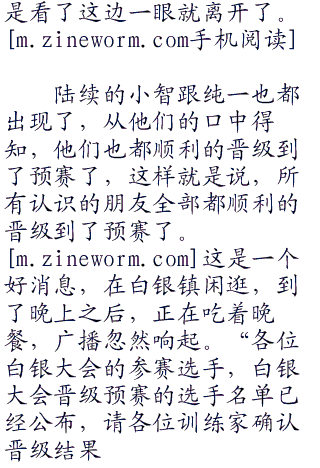 是看了这边一眼就离开了。
[m.zineworm.com手机阅读]
陆续的小智跟纯一也都
出现了，从他们的口中得
知，他们也都顺利的晋级到
了预赛了，这样就是说，所
有认识的朋友全部都顺利的
晋级到了预赛了。
[m.zineworm.com]这是一个
好消息，在白银镇闲逛，到
了晚上之后，正在吃着晚
餐，广播忽然响起。“各位
白银大会的参赛选手，白银
大会晋级预赛的选手名单已
经公布，请各位训练家确认
晋级结果